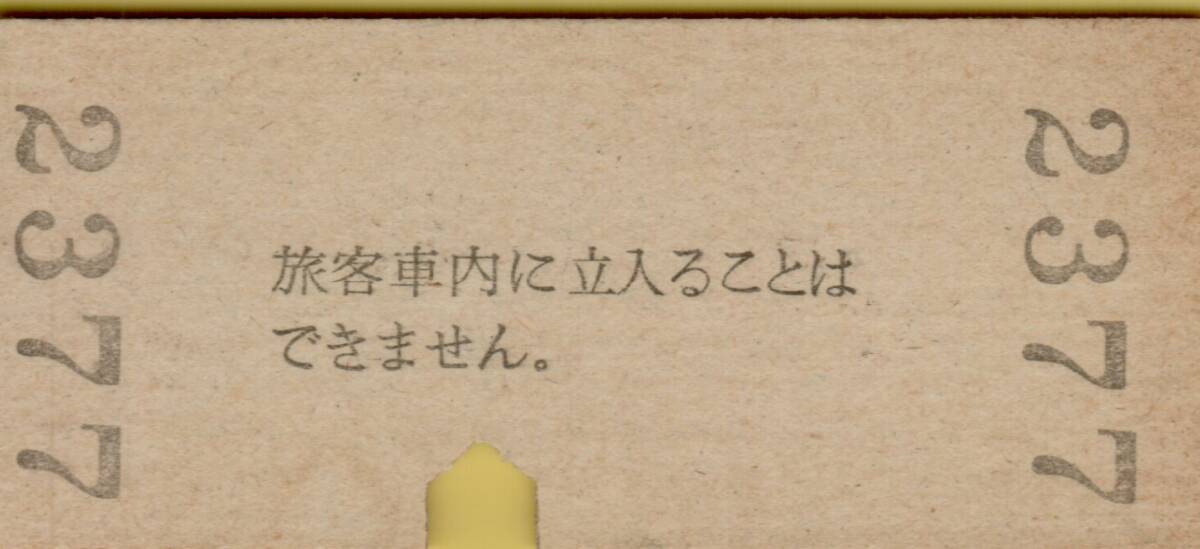 2377
旅客車内に立入ることは
できません。
2377